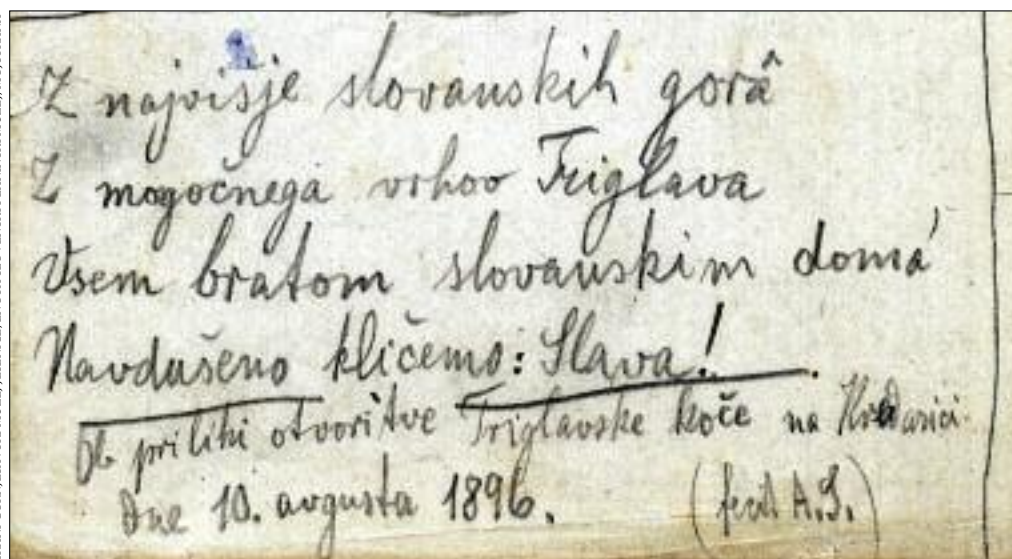 Z najvišje slovanskih gorâ
Z mogočnega vrhov Triglava
Vsem bratom slovanskim domá
Navdušeno kličemo: Slava!
Ob priliki otvoritve Triglavske koče na Kredarici.
Dne 10. avgusta 1896. (fecit A.S.)